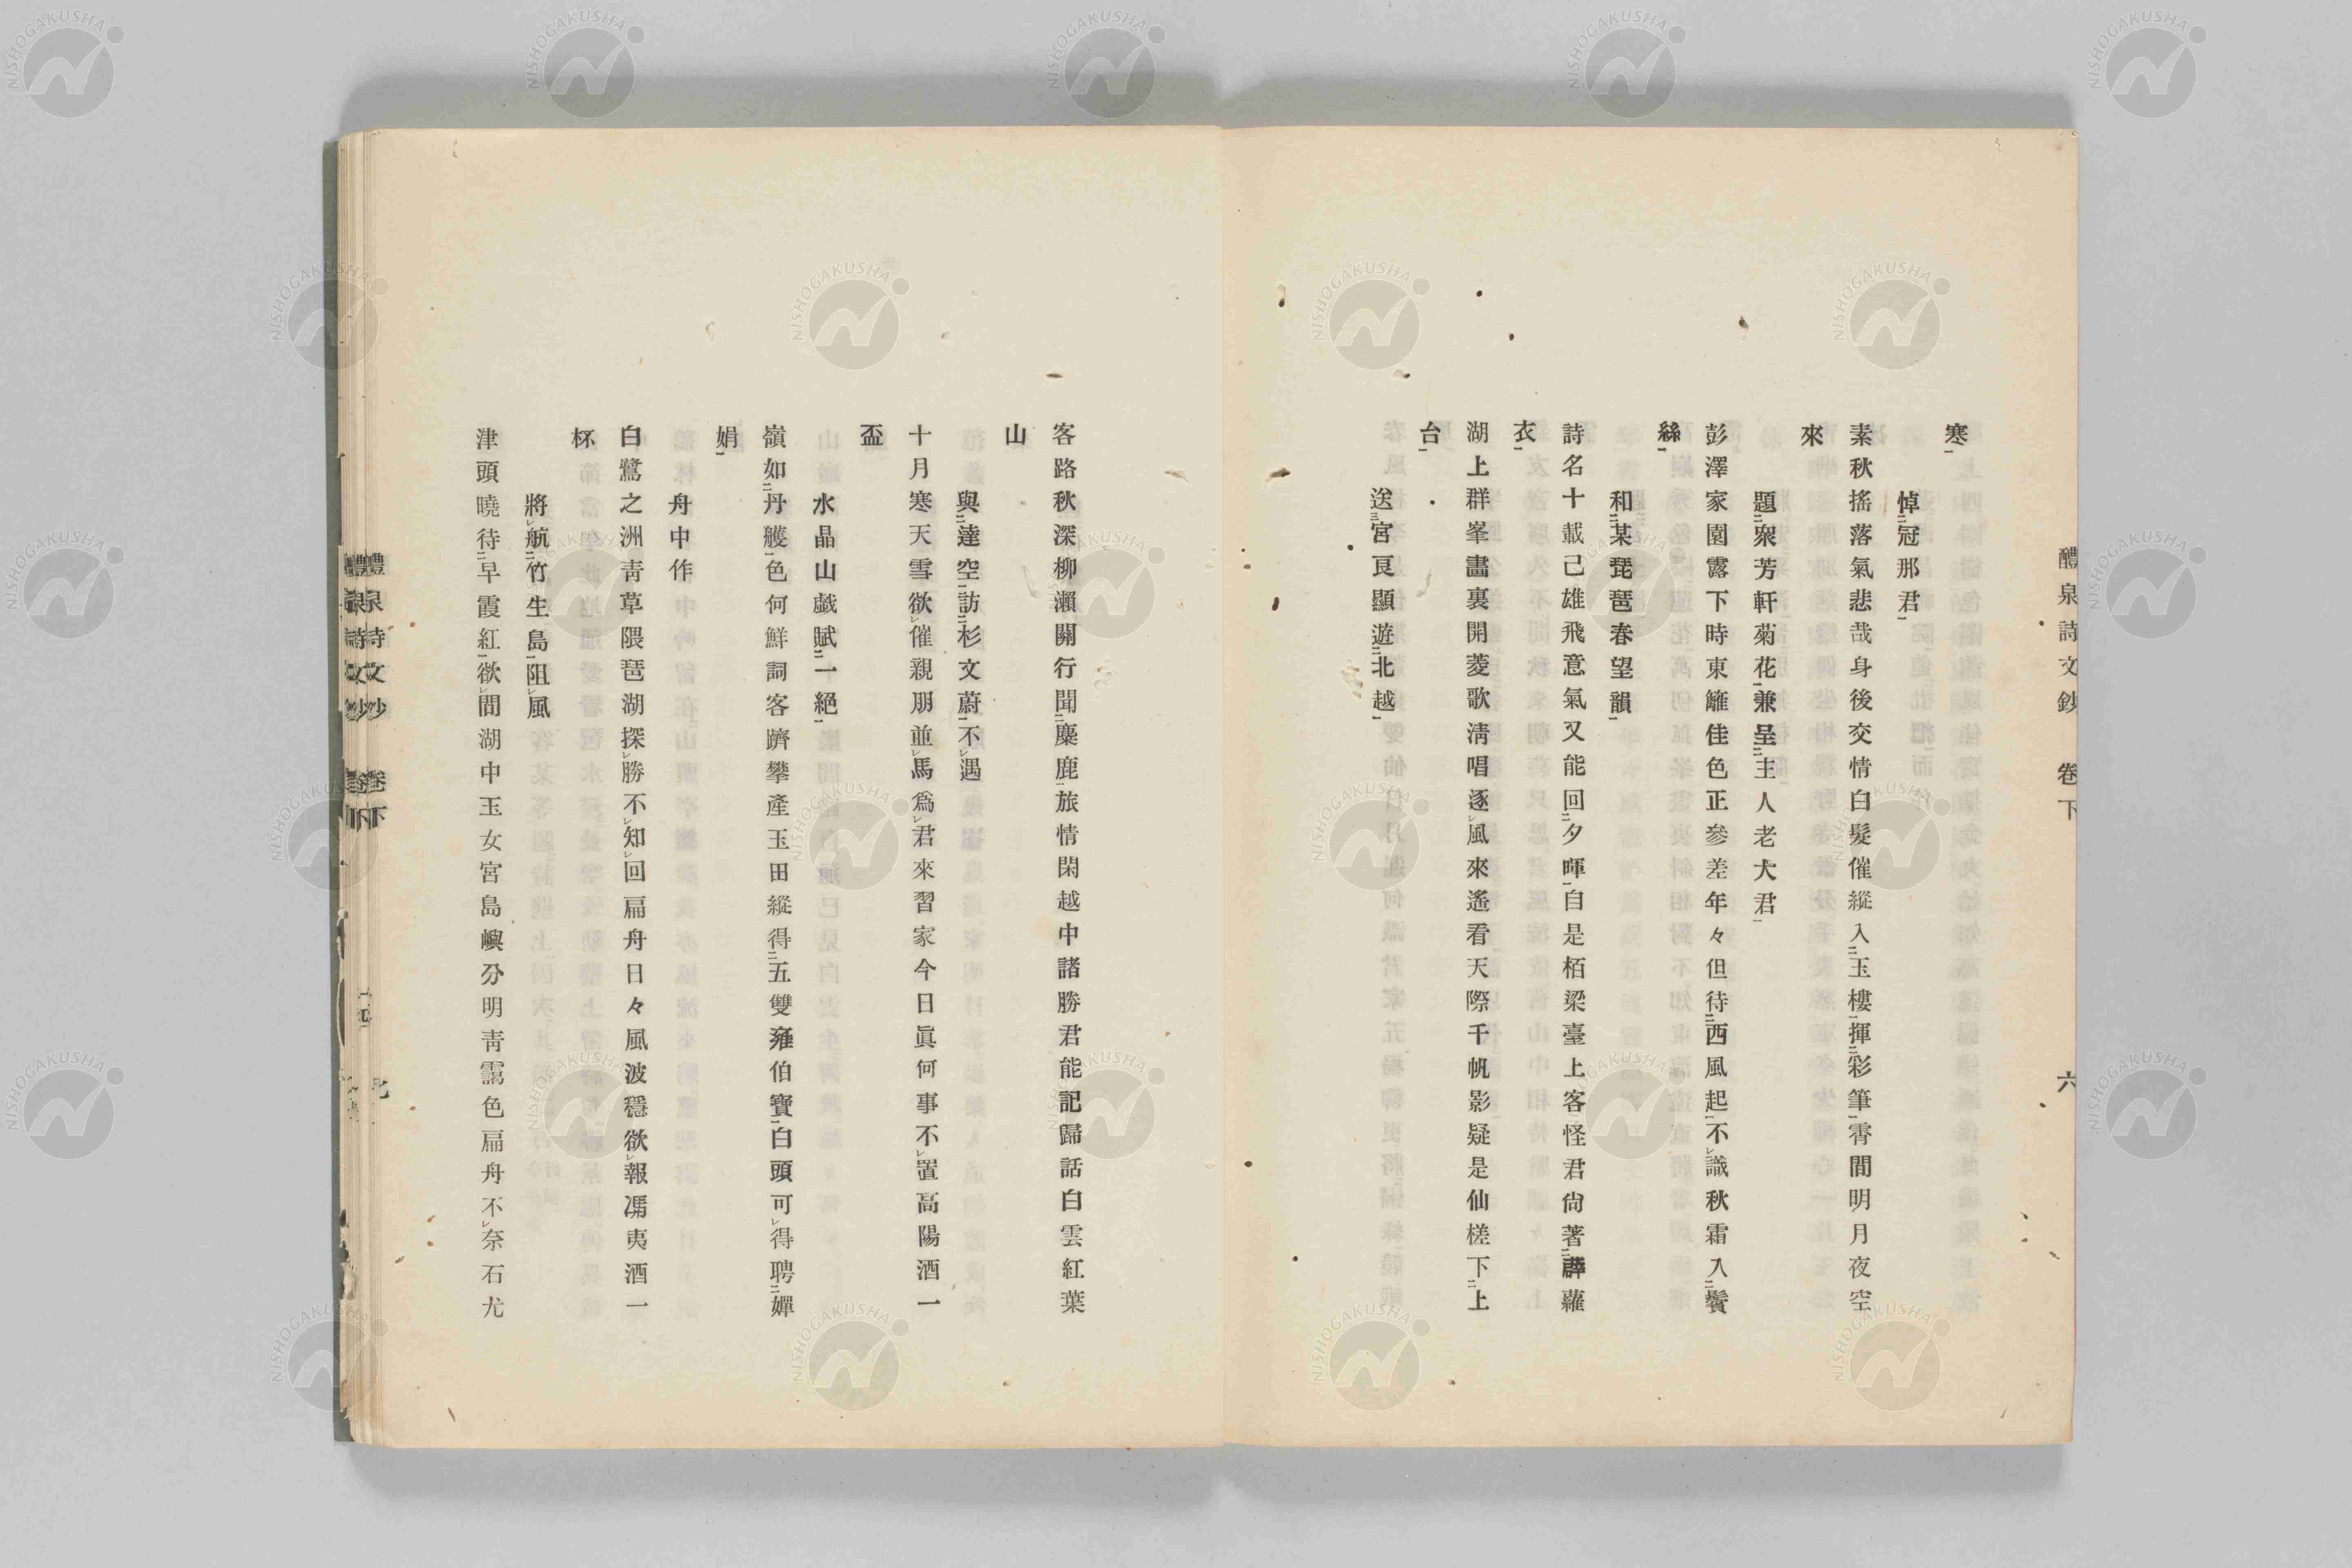 醴泉詩文鈔　卷下　六
寒
悼冠那君
素秋搖落氣悲哉身後交情白髮催縱入玉樓揮彩筆霄間明月夜空
來
題聚芳軒菊花兼呈主人老犬君
彭澤家園露下時東籬佳色正參差年々但待西風起不識秋霜入鬢
絲
和某琵琶春望韻
詩名十載已雄飛意氣又能回夕暉自是栢梁臺上客怪君尙著薜蘿
衣
湖上群峯畵裏開菱歌淸唱逐風來遙看天際千帆影疑是仙槎下上
台
送宮亙顯遊北越
客路秋深柳瀨關行聞麋鹿旅情閑越中諸勝君能記歸話白雲紅葉
山
與達空訪杉文蔚不遇
十月寒天雪欲催親朋並馬爲君來習家今日眞何事不置高陽酒一
盃
水晶山戱賦一絕
嶺如丹艧色何鮮詞客躋攀產玉田縱得五雙雍伯寶白頭可得聘嬋
娟
舟中作
白鷺之洲靑草隈琶湖探勝不知回扁舟日々風波穩欲報馮夷酒一
杯
將航竹生島阻風
津頭曉待早霞紅欲問湖中玉女宮島嶼分明靑靄色扁舟不奈石尤
醴泉詩文鈔　卷下